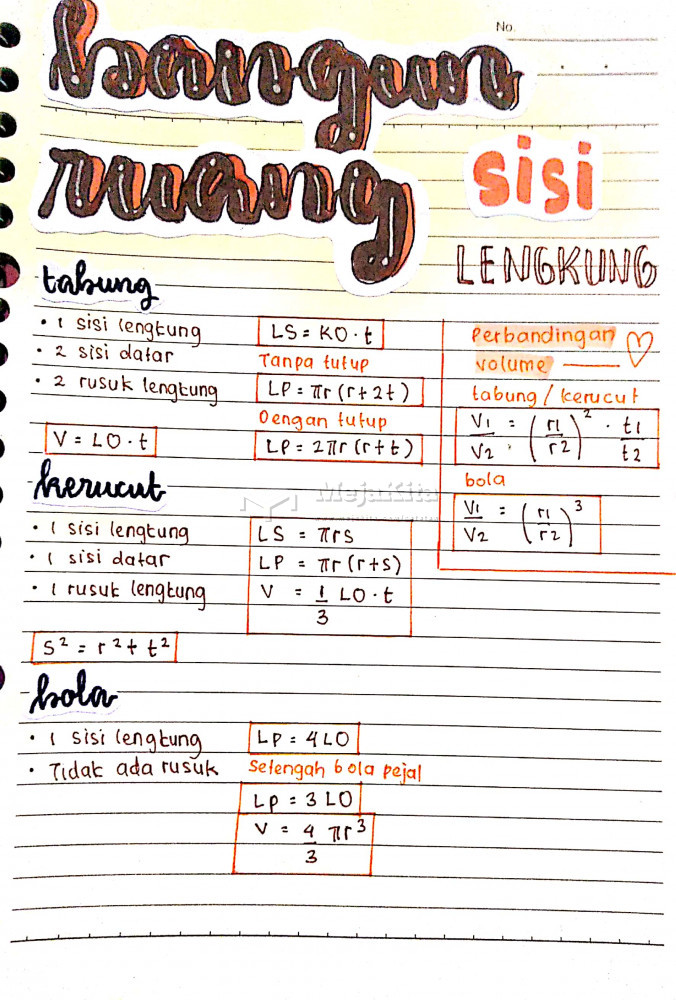 No.
bangun
ruang sisi
LENGKUNG
tabung
• 1 sisi lengkung
• 2 sisi datar
• 2 rusuk lengkung
V = LO · t
LS = KO · t
Tanpa tutup
LP = πr (r + 2t)
Dengan tutup
LP = 2πr (r + t)
Perbandingan
volume
tabung / kerucut
V1/V2 = (r1/r2)² · t1/t2
bola
V1/V2 = (r1/r2)³
MejaKita
kerucut
• 1 sisi lengkung
• 1 sisi datar
• 1 rusuk lengkung
LS = πrs
LP = πr (r + s)
V = 1/3 LO · t
S² = r² + t²
bola
• 1 sisi lengkung
• Tidak ada rusuk
LP = 4 LO
Setengah bola pejal
Lp = 3 LO
V = 4/3 πr³